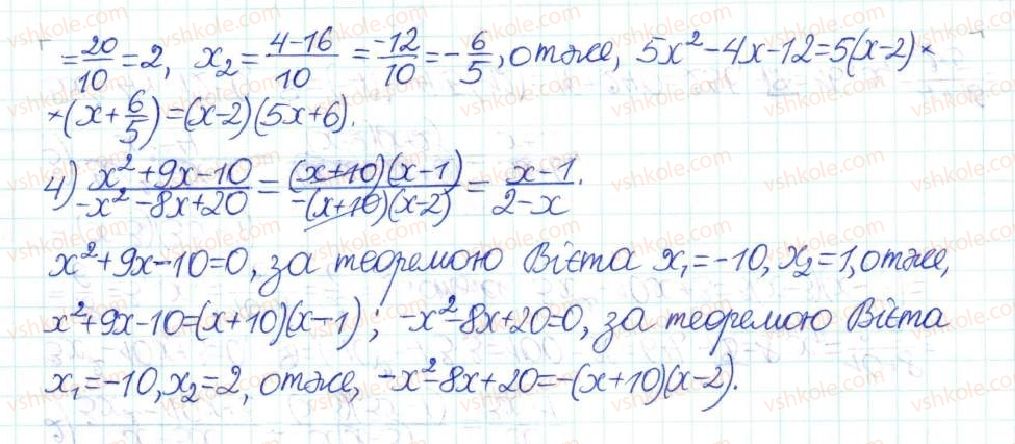 = 20/10 = 2, x₂ = (4-16)/10 = -12/10 = -6/5, отже, 5x²-4x-12=5(x-2)×
×(x+6/5)=(x-2)(5x+6).
4) (x²+9x-10)/(-x²-8x+20) = ((x+10)(x-1))/(-(x+10)(x-2)) = (x-1)/(2-x).
x²+9x-10=0, за теоремою Вієта x₁=-10, x₂=1, отже,
x²+9x-10=(x+10)(x-1); -x²-8x+20=0, за теоремою Вієта
x₁=-10, x₂=2, отже, -x²-8x+20=-(x+10)(x-2).